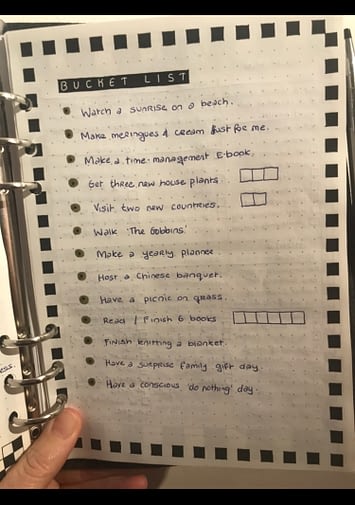 BUCKET LIST
Watch a sunrise on a beach.
Make meringues & cream just for me.
Make a time-management E-book.
Get three new house plants
Visit two new countries.
Walk 'The Gobbins'
Make a yearly planner
Host a Chinese banquet.
Have a picnic on grass.
Read / Finish 6 books
Finish knitting a blanket.
Have a surprise family gift day.
Have a conscious 'do nothing' day.
ess.